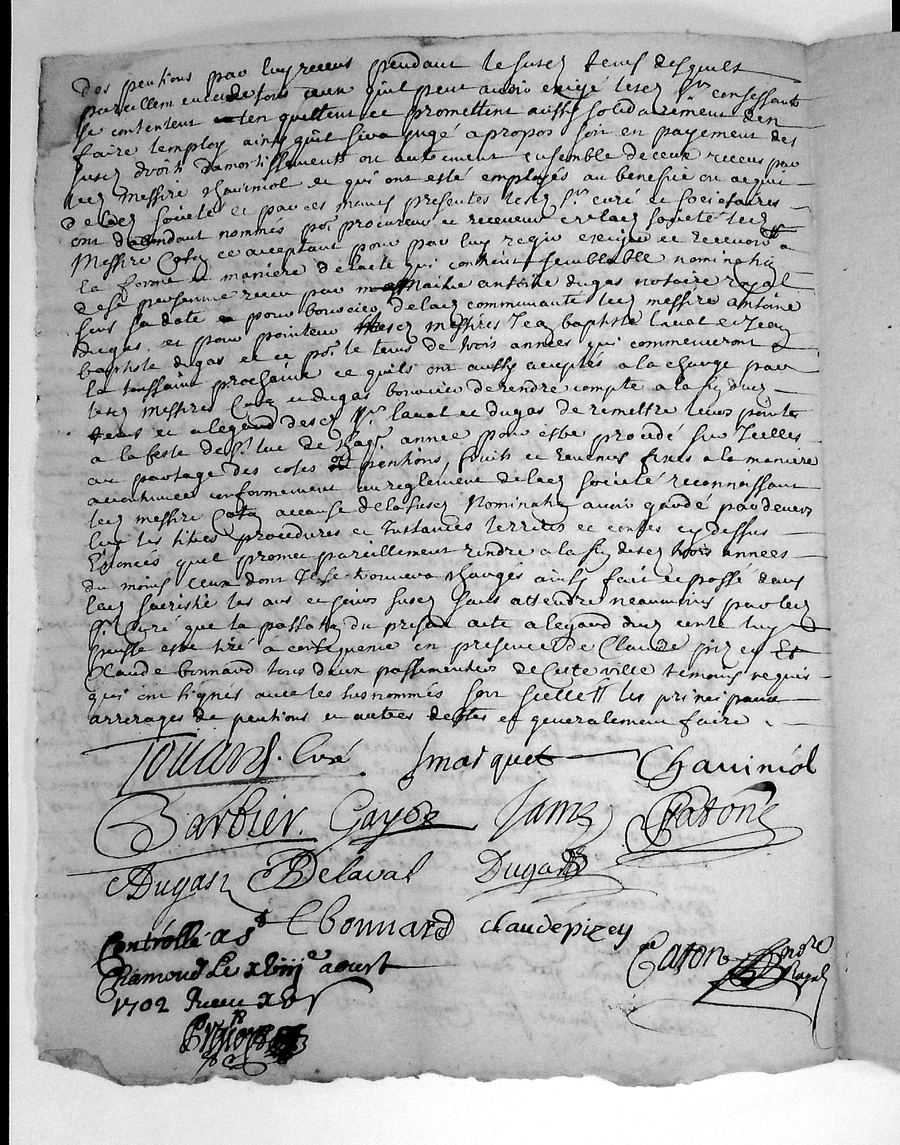 des pentions par luy receus pendant le susd temps desquels
pareillem en cas de soit qu'il peut avoir exigé lesd Srs consessants
se contentent en quittent et promettent aussy solidairement d'en
faire lemploy ainsy quil sera jugé a propos soit en payement des
susd droits damortissements ou autrement ensemble de ceux receus par
led messire Chaviniol et qui ont esté employés au benefice ou acquit
de lad societé et par ces mesmes presentes lesd Sr curé et societaires
ont nommés pr procureur et receveur de lad societé led
Messire Caton ce acceptant pour par luy regir exiger et recevoir a
la forme et maniere de lacte qui contient semblable nomination
de sa personne receu par Maitre antoine dugas notaire royal
sous sa date et pour boursier de lad communauté led messire antoine
dugas, et pour pointeur lesd messires Jean baptiste laval et Jean
baptiste dugas et ce pr le tems de trois années qui commenceront a
la toussaint prochaine ce quils ont aussy acceptés a la charge par
lesd messires Caton et dugas boursier de rendre compte a la fin dud
tems et a legard desd Srs laval et dugas de remettre leurs points
a la feste de St luc de chaqe année pour estre procedé sur Icelles
au partage des cotes pentions, fruits et revenus fixes a la maniere
accoutumée conformement au reglement de lad societé reconnoissant
led messire Caton a cause de la susd Nomination avoir gardé par devers
luy les titres procedures et Instances terriers et confes cy dessus
Enoncés quil promet pareillement rendre a la fin desd trois années
du moins ceux dont Il se trouvera chargés ainsy fait et passé dans
lad sacristie les ans et jour susd sans attendre neanmoins par led
Sr Curé que la passation du present acte a legard dud
puisse estre tiré a consequence en presence de Claude pizey Et
Claude bonnard tous deux passementiers de Cette ville temoins requis
qui ont signés avec les susnommés les principaux
arrerages de pentions et autres dettes et generalement faire
Touard. Curé Jmarquet Chaviniol
Barbier. Gayot Jamz Caton
ADugas Delaval Dugas
C bonnard claude pizey
Controllé a St
Chamond Le xviiije aoust
1702 Receu
Caton Nore
Royal